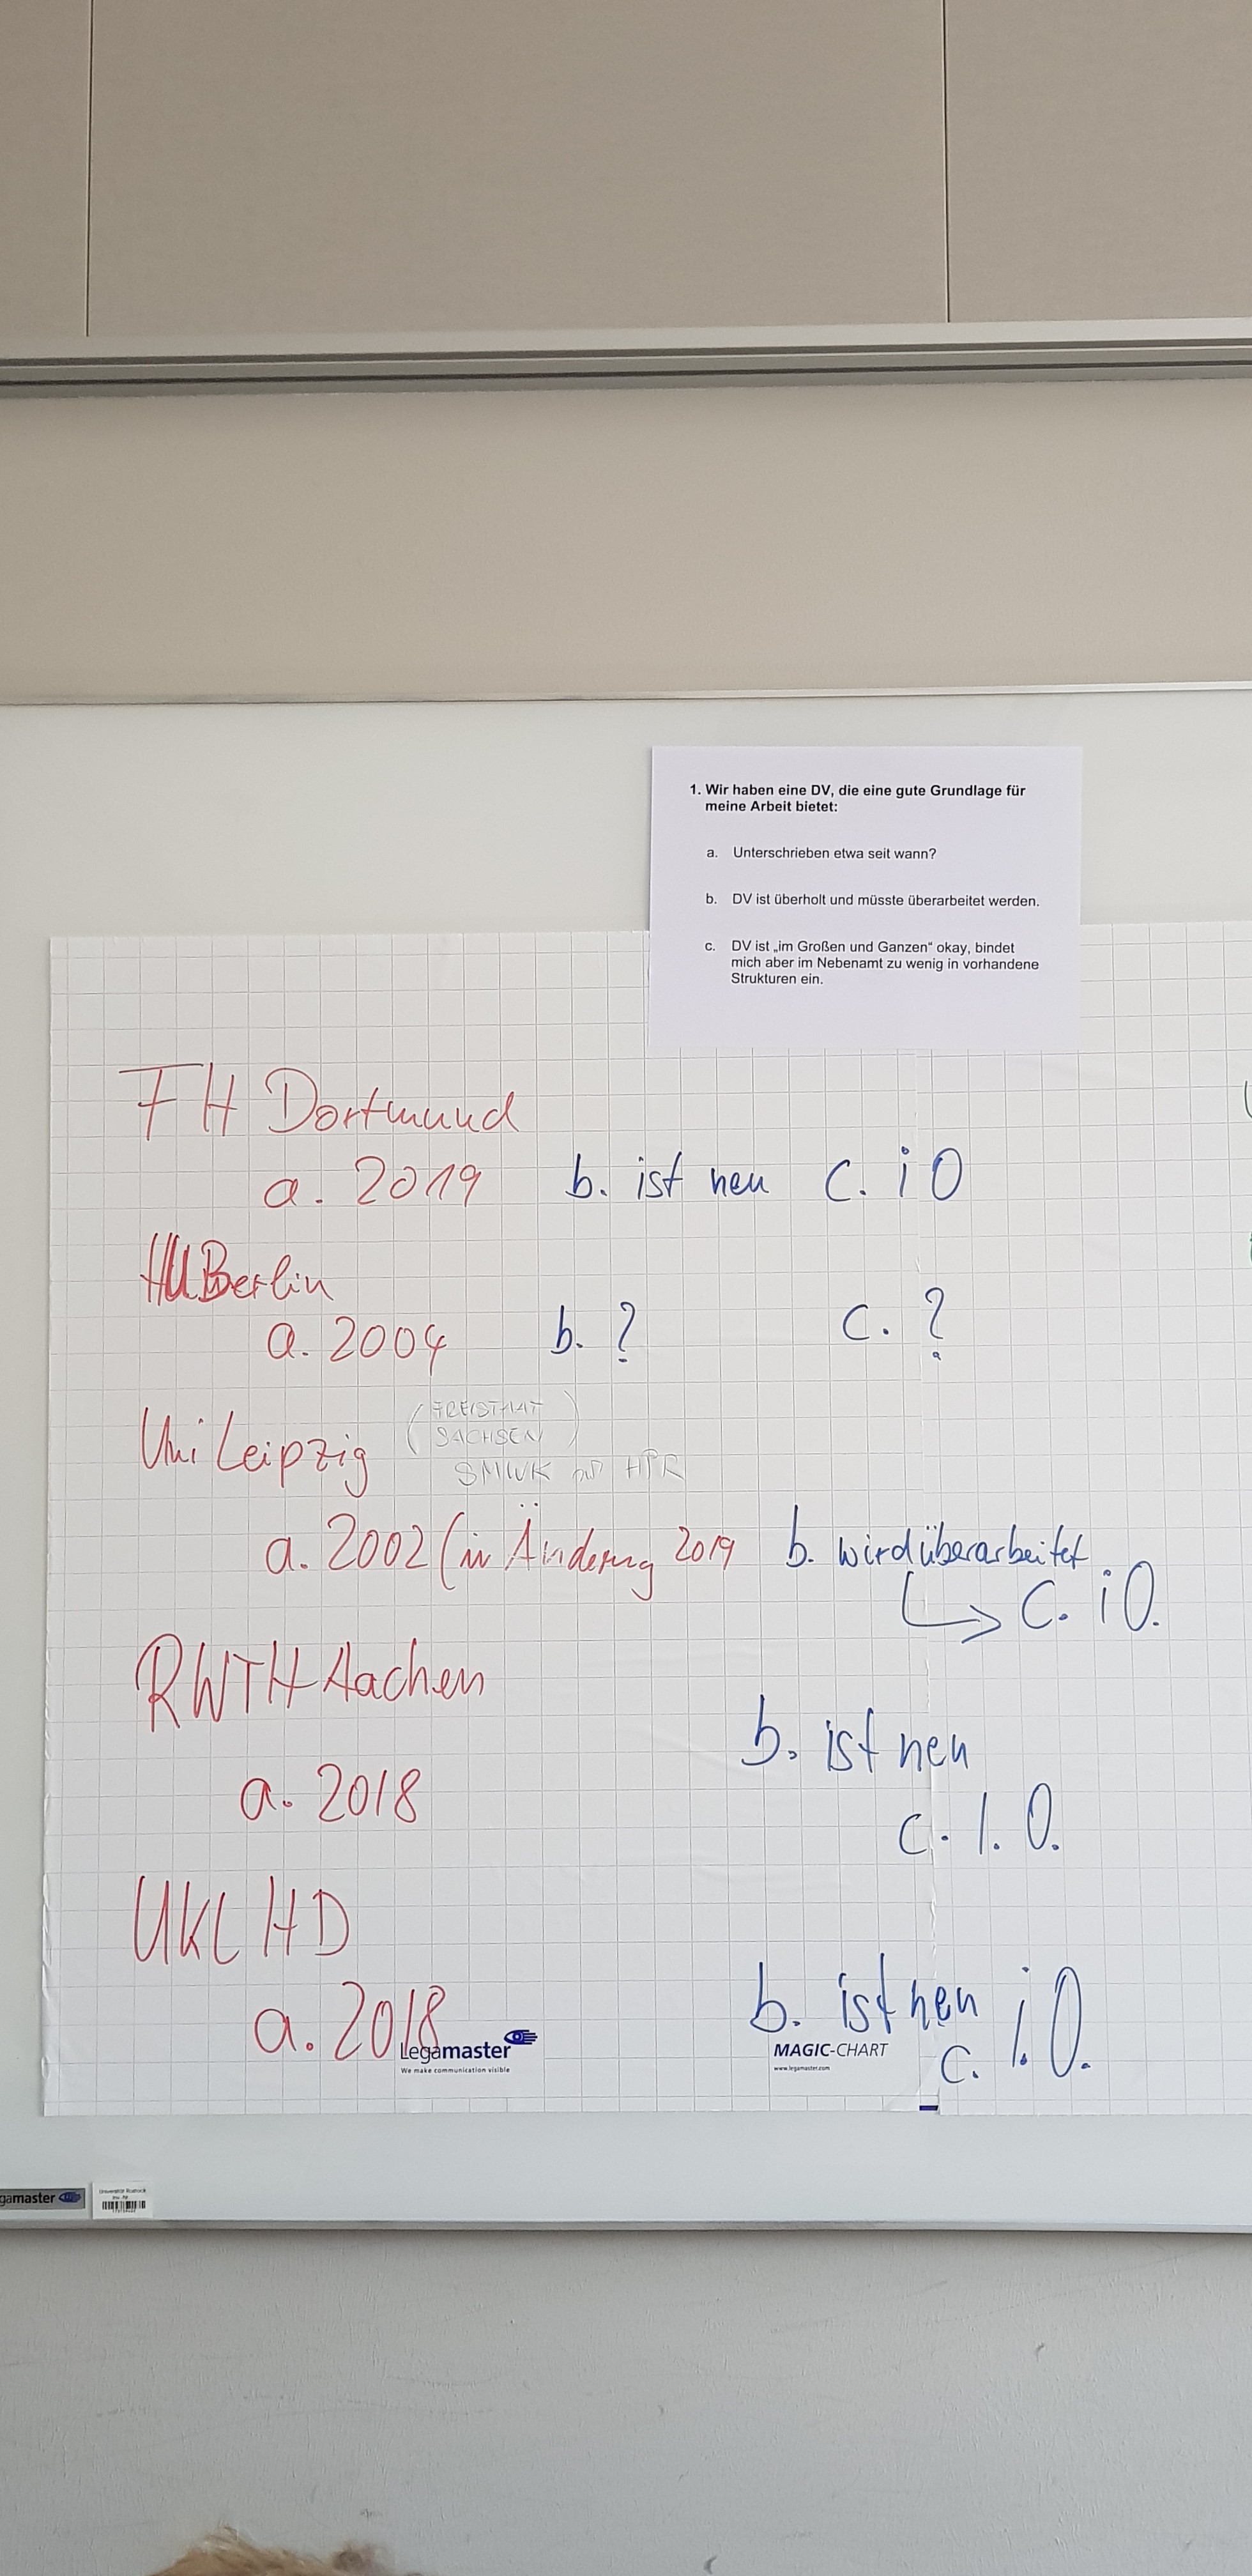 1. Wir haben eine DV, die eine gute Grundlage für
meine Arbeit bietet:
a. Unterschrieben etwa seit wann?
b. DV ist überholt und müsste überarbeitet werden.
c. DV ist „im Großen und Ganzen“ okay, bindet
mich aber im Nebenamt zu wenig in vorhandene
Strukturen ein.
FH Dortmund
a. 2019 b. ist neu c. i O
HU Berlin
a. 2004 b. ? c. ?
Uni Leipzig (FREISTAAT
SACHSEN)
SMWK HPR
a. 2002 (in Änderung 2019 b. wird überarbeitet
c. i O.
RWTH Aachen
b. ist neu
a. 2018
c. I. O.
UKL HD
a. 2018 b. ist neu
c. i. O.
Legamaster
We make communication visible
MAGIC-CHART
www.legamaster.com
gamaster
Universität Rostock